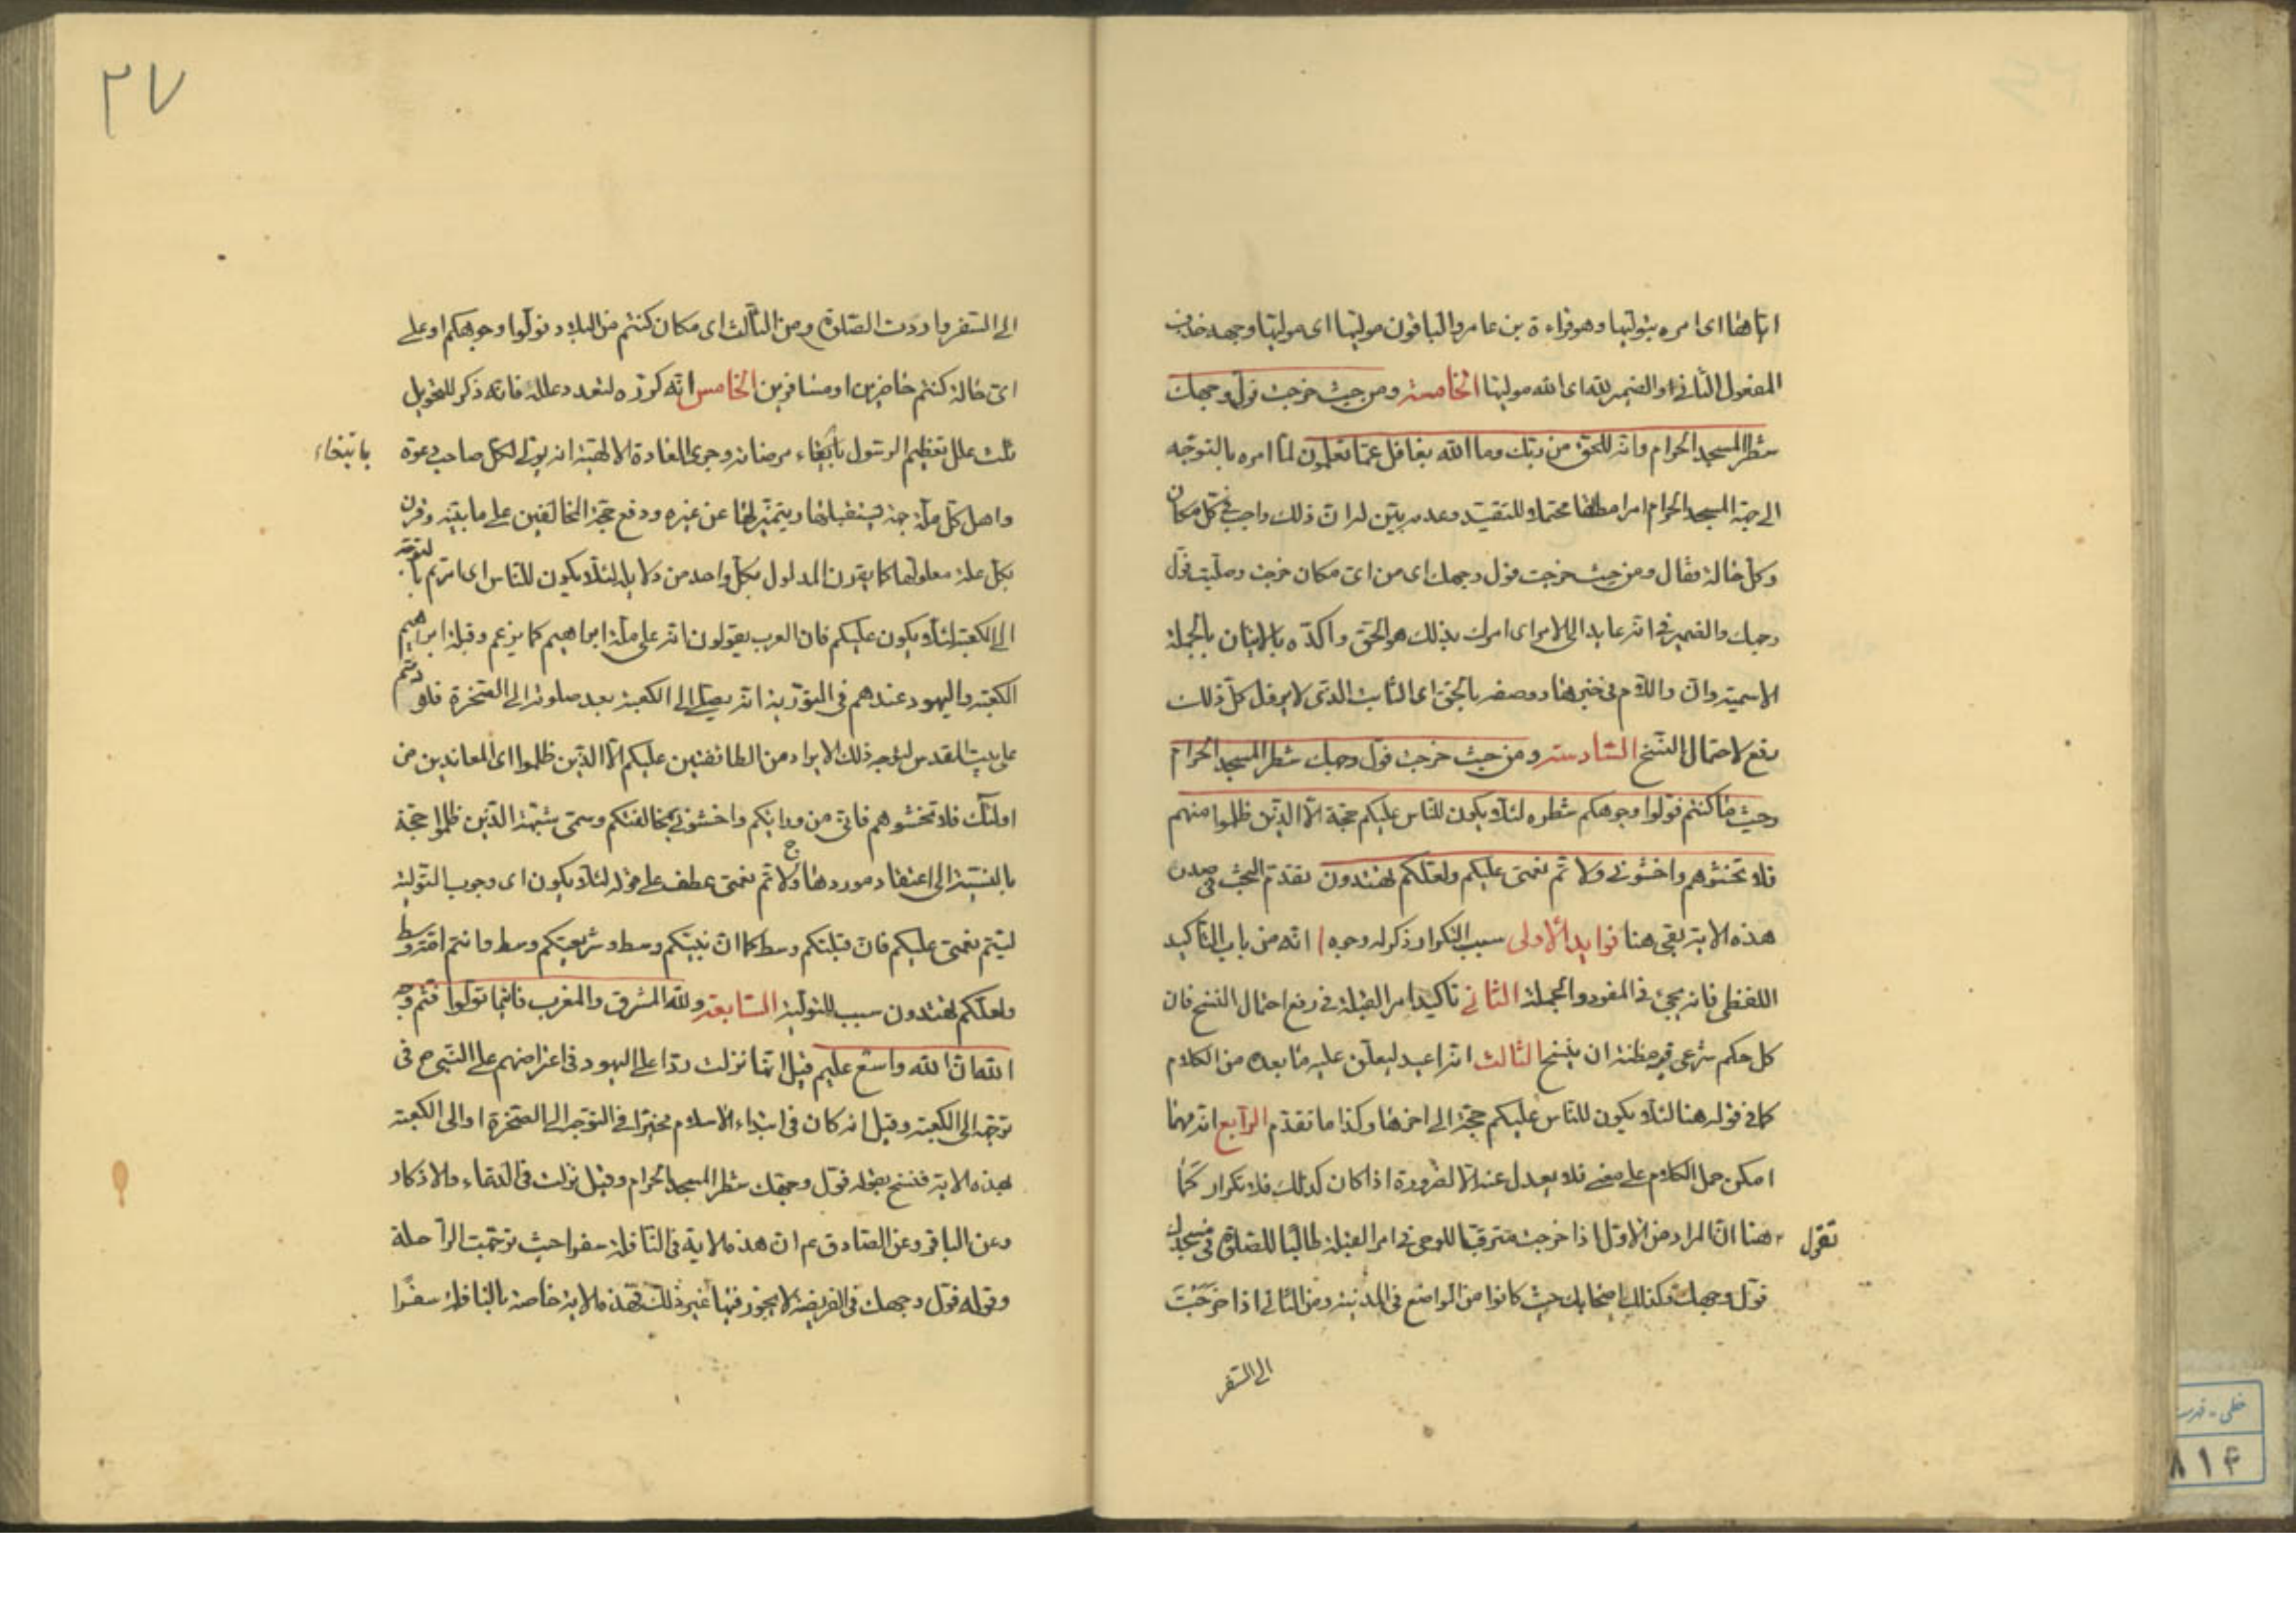 اياها اى امره بتوليها وهو قراءة بن عامر والباقون موليها اى موليها وجهه فحذف
المفعول الثانى او الضمير لله اى الله موليها الخامسة ومن حيث خرجت فول وجهك
شطر المسجد الحرام وانه للحق من ربك وما الله بغافل عما تعملون لما امره بالتوجه
الى جهة المسجد الحرام امرا مطلقا محتملا للتقييد وعدمه بين له ان ذلك واجب فى كل مكان
وكل حالة فقال ومن حيث خرجت فول وجهك اى من اى مكان خرجت وصليت فول
وجهك والضمير فى انه عايد الى الامر اى امرك بذلك هو الحق واكده بالاتيان بالجملة
الاسمية وان واللام فى خبرها ووصفه بالحق اى الثابت الذى لا يزول كل ذلك
دفع لاحتمال النسخ السادسة ومن حيث خرجت فول وجهك شطر المسجد الحرام
وحيث ما كنتم فولوا وجوهكم شطره لئلا يكون للناس عليكم حجة الا الذين ظلموا منهم
فلا تخشوهم واخشونى ولا تم نعمتى عليكم ولعلكم تهتدون تقدم البحث فى صدر
هذه الاية بقى هنا فوايد الاولى سبب التكرار وذكر له وجوه ا انه من باب التاكيد
اللفظى فانه يجئ فى المفرد والجملة الثانى تاكيد امر القبلة فى رفع احتمال النسخ فان
كل حكم شرعى فيه مظنة ان ينسخ الثالث انه اعيد ليعلق عليه ما بعده من الكلام
كما فى قوله هنا لئلا يكون للناس عليكم حجة الى اخرها وكذا ما تقدم الرابع انه مهما
امكن حمل الكلام على معنى فلا يعدل عنه الا لضرورة اذا كان كذلك فلا تكرار كما
تقول
هنا ان المراد من الاول اذا خرجت مترقبا للوحى فى امر القبلة طالبا للصلوة فى مسجدك
فول وجهك وكذلك اصحابك حيث كانوا من المواضع فى المدينة ومن الثانى اذا خرجت
الى السفر
٢٧
الى السفر واردت الصلوة ومن الثالث اى مكان كنتم من البلاد فولوا وجوهكم او على
اى حالة كنتم حاضرين او مسافرين الخامس انه كرره لتعدد علله فانه ذكر للتحويل
ثلث علل تعظيم الرسول بابتغاء مرضاته وجرى العادة الالهية انه يولى لكل صاحب دعوة
بابتغاء
واهل كل ملة جهة يستقبلها ويتميز بها عن غيره ودفع حجة المخالفين على ما بينه وقرن
بكل علة معلولها كما يقرن المدلول بكل واحد من دلايله لئلا يكون للناس اى امرتم بالتوجه
الى الكعبة لئلا يكون عليكم فان العرب يقولون انه على ملة ابراهيم كما يزعم وقبلة ابراهيم
الكعبة واليهود عندهم فى التورية انه يصلى الى الكعبة بعد صلوته الى الصخرة فلو دمتم
على بيت المقدس لتوجه ذلك الايراد من الطائفتين عليكم الا الذين ظلموا اى المعاندين من
اولئك فلا تخشوهم فانى من ورائكم واخشونى بمخالفتكم وسمى شبهة الذين ظلموا حجة
بالنسبة الى اعتقاد موردها ولا تم نعمتى عطف على قوله لئلا يكون اى وجوب التولية
ليتم نعمتى عليكم فان قبلتكم وسط كما ان نبيكم وسط وشريعتكم وسط وانتم امة وسط
ولعلكم تهتدون سبب للتولية السابعة ولله المشرق والمغرب فاينما تولوا فثم وجه
الله ان الله واسع عليم قيل انها نزلت ردا على اليهود فى اعتراضهم على النبى ص فى
توجهه الى الكعبة وقيل انه كان فى ابتداء الاسلام مخيرا فى التوجه الى الصخرة او الى الكعبة
بهذه الاية فنسخ بقوله فول وجهك شطر المسجد الحرام وقيل نزلت فى الدعاء والاذكار
وعن الباقر وعن الصادق ع م ان هذه الاية فى النافلة سفرا حيث توجهت الراحلة
وقوله فول وجهك فى الفريضة لا يجوز فيها غير ذلك فهذه الاية خاصة بالنافلة سفرا
خطى - فهرست
٨١٤